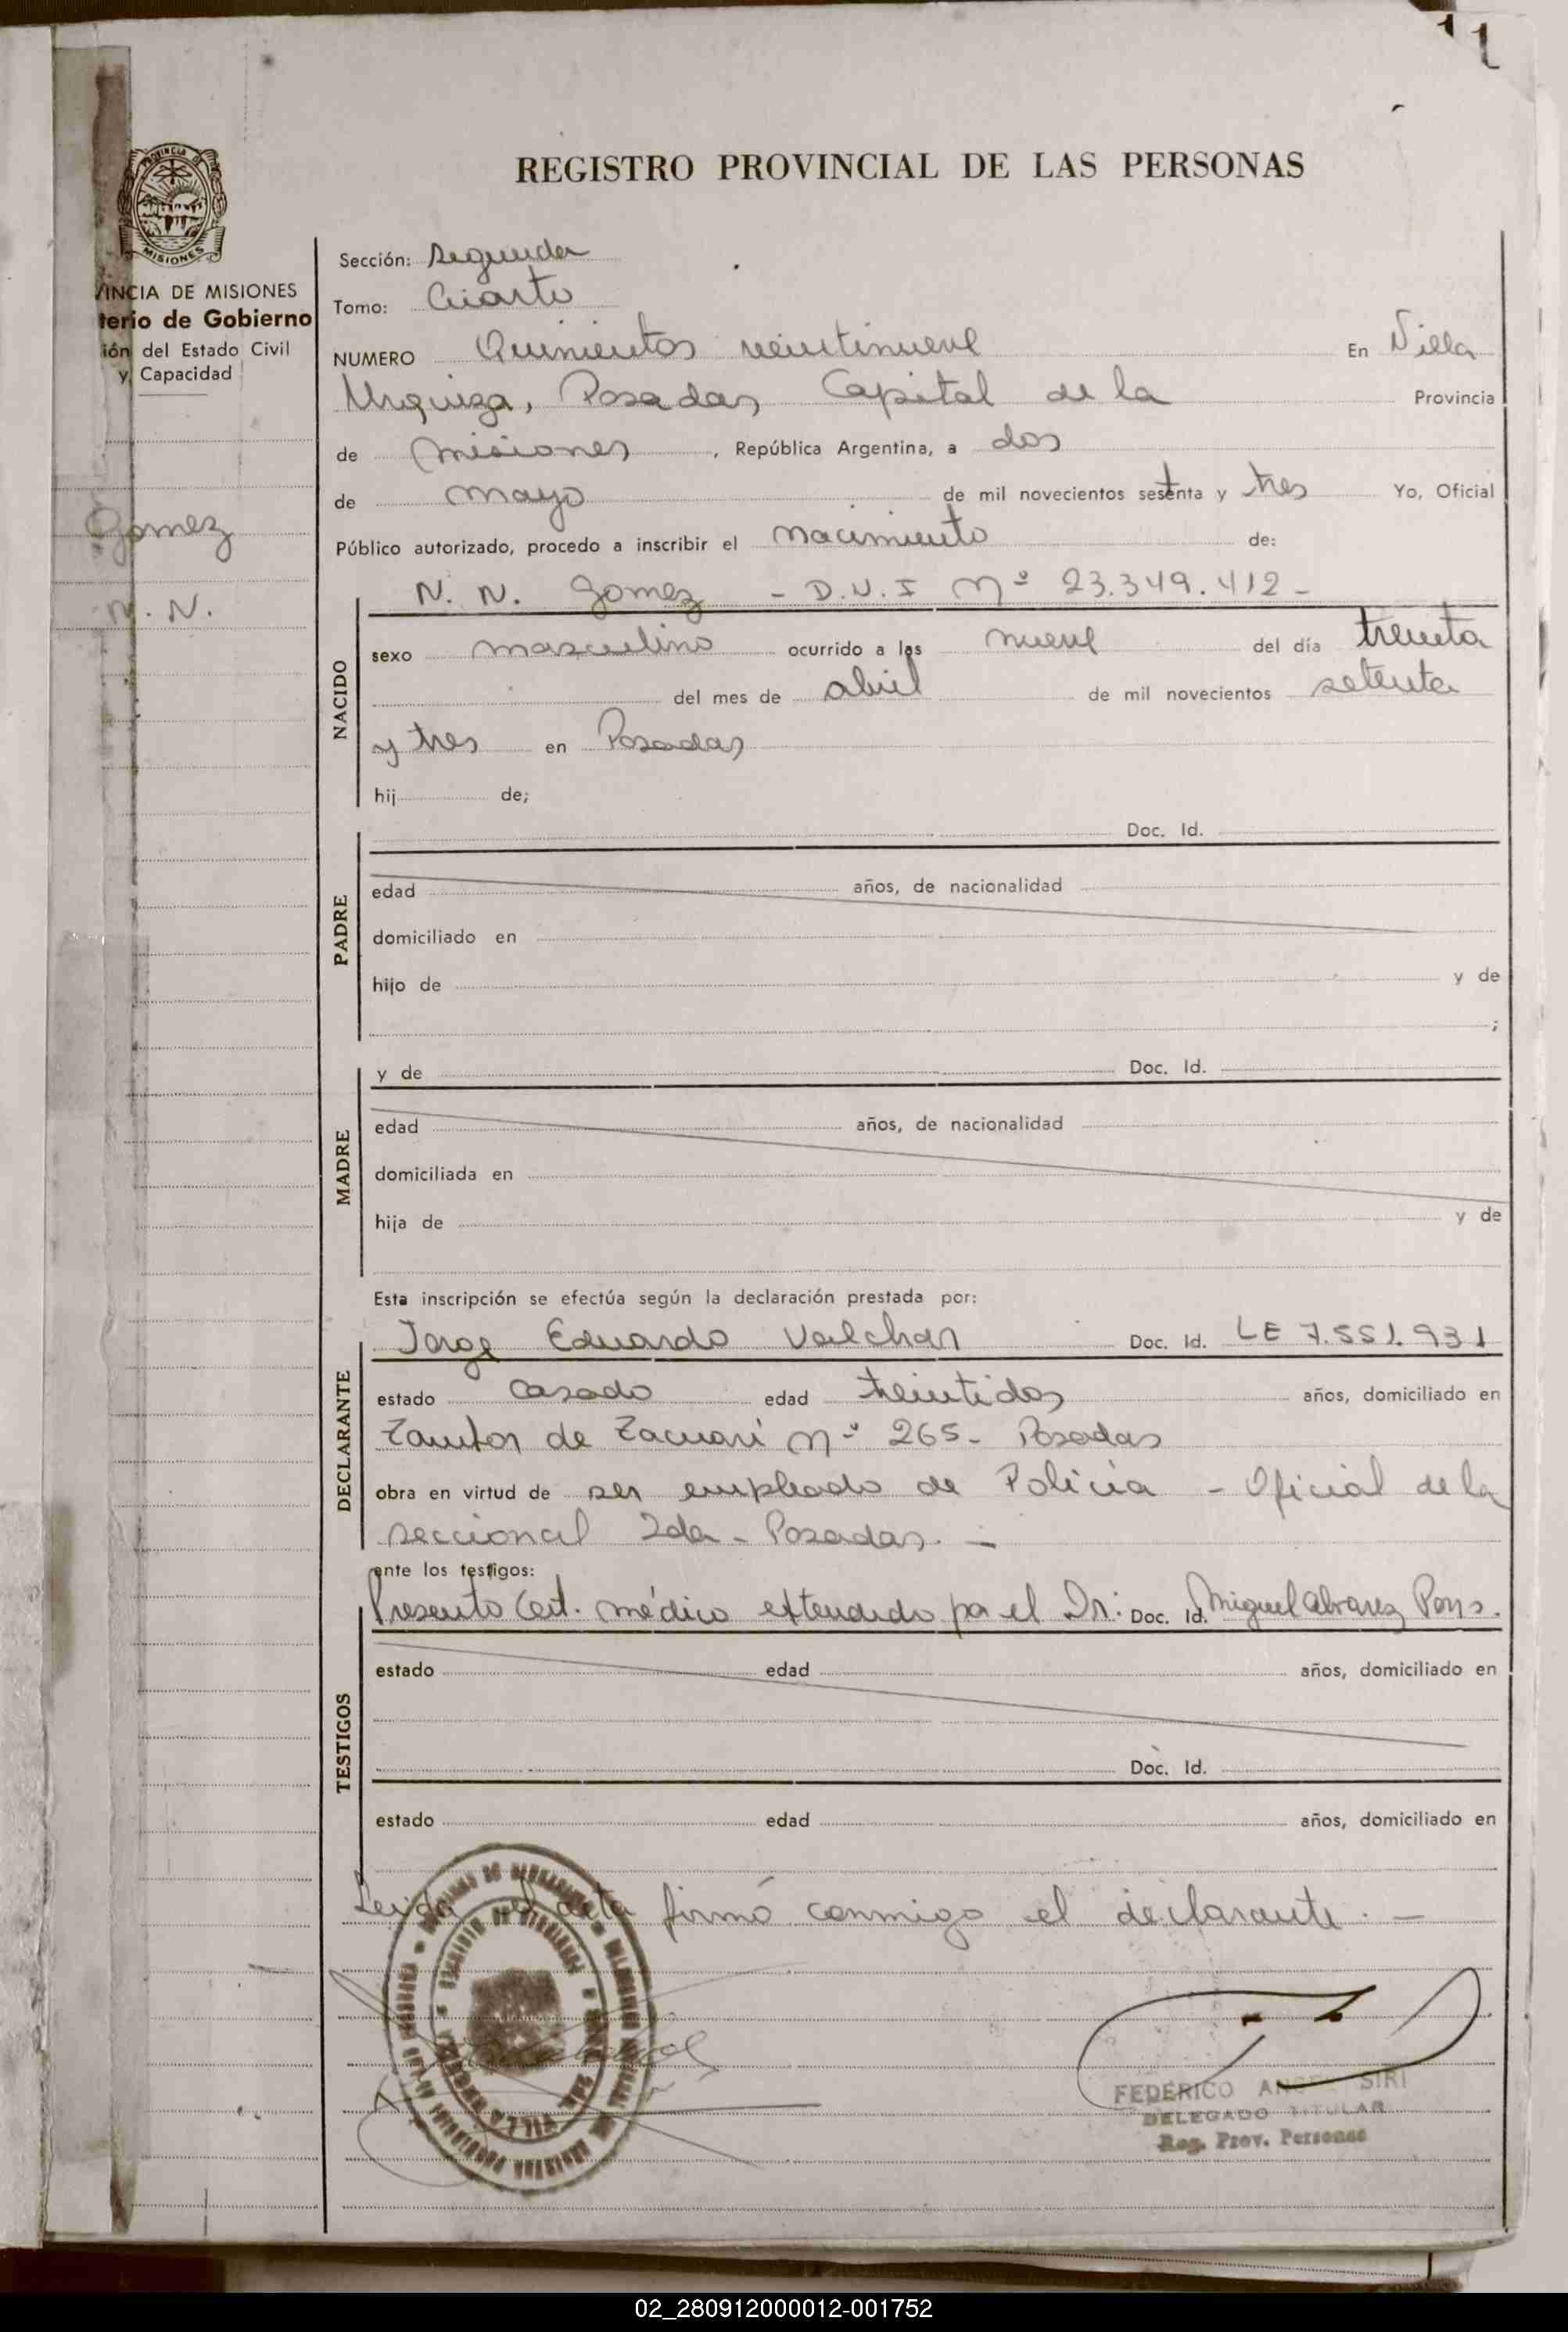 11
REGISTRO PROVINCIAL DE LAS PERSONAS
PROVINCIA DE
MISIONES
VINCIA DE MISIONES
terio de Gobierno
ión del Estado Civil
y Capacidad
Gomez
N. N.
Sección: Segunda
Tomo: Cuarto
NUMERO Quinientos veintinueve En Villa
Urquiza, Posadas Capital de la Provincia
de Misiones, República Argentina, a dos
de mayo de mil novecientos setenta y tres Yo, Oficial
Público autorizado, procedo a inscribir el nacimiento de:
N. N. Gomez - D.N.I Nº 23.349.412-
NACIDO
sexo masculino ocurrido a las nueve del día treinta
del mes de abril de mil novecientos setenta
y tres en Posadas
hij de;
Doc. Id.
PADRE
edad años, de nacionalidad
domiciliado en
hijo de y de
;
y de Doc. Id.
MADRE
edad años, de nacionalidad
domiciliada en
hija de y de
Esta inscripción se efectúa según la declaración prestada por:
Jorge Eduardo Doc. Id. LE 7.551.931
DECLARANTE
estado casado edad treintidos años, domiciliado en
Tambor de Tacuarí Nº 265- Posadas
obra en virtud de ser empleado de Policia - Oficial de la
seccional 2da - Posadas. -
ante los testigos:
Presento Cert. médico extendido por el Dr: Doc. Id. Miguel Alvarez Pons.
TESTIGOS
estado edad años, domiciliado en
Doc. Id.
estado edad años, domiciliado en
Leida el acta firmó conmigo el declarante. -
FEDERICO ANGEL SIRI
DELEGADO TITULAR
Reg. Prov. Personas
02_280912000012-001752